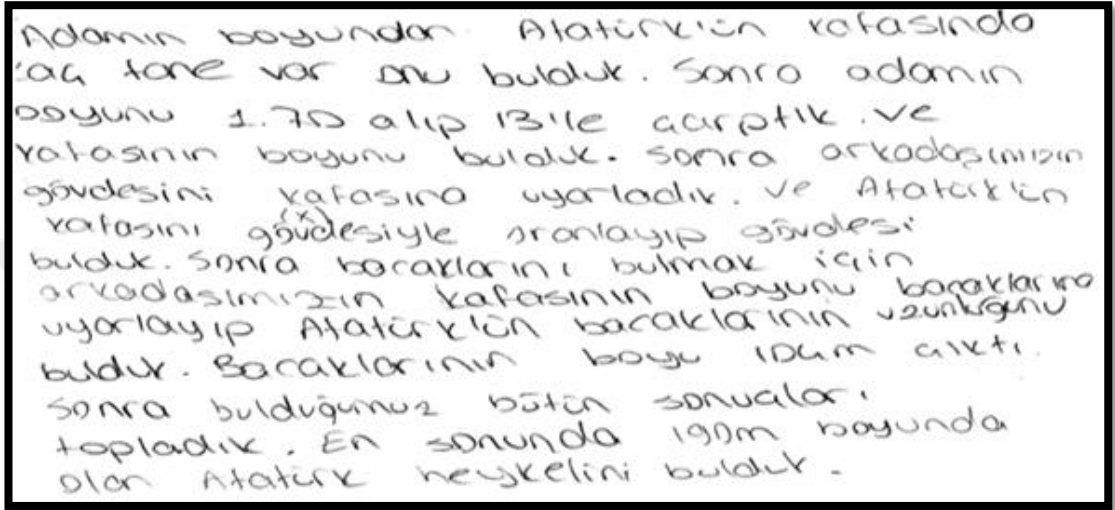 Adamın boyundan Atatürk'ün kafasında
kaç tane var onu bulduk. Sonra adamın
boyunu 1.70 alıp 13'le çarptık. ve
kafasının boyunu bulduk. sonra arkadaşımızın
gövdesini kafasına uyarladık. ve Atatürk'ün
kafasını (x) gövdesiyle oranlayıp gövdesi
bulduk. Sonra bacaklarını bulmak için
arkadaşımızın kafasının boyunu bacaklarına
uyarlayıp Atatürk'ün bacaklarının uzunluğunu
bulduk. Bacaklarının boyu çıktı.
sonra bulduğumuz bütün sonuçları
topladık. En sonunda 190m boyunda
olan Atatürk heykelini bulduk.